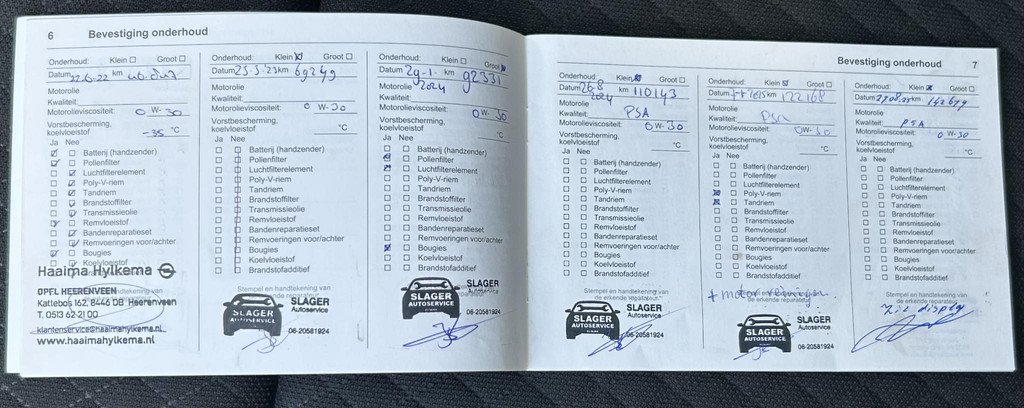 6 Bevestiging onderhoud
Onderhoud: Klein Groot
Datum 22-6-22 km
Motorolie
Kwaliteit:
Motorolieviscositeit: 0 W-30
Vorstbescherming, koelvloeistof -35 °C
Ja Nee
Batterij (handzender)
Pollenfilter
Luchtfilterelement
Poly-V-riem
Tandriem
Brandstoffilter
Transmissieolie
Remvloeistof
Bandenreparatieset
Remvoeringen voor/achter
Bougies
Koelvloeistof
Haaima Hylkema
OPEL HEERENVEEN
Kattebos 162, 8446 DB Heerenveen
T. 0513 62 21 00
klantenservice@haaimahylkema.nl
www.haaimahylkema.nl
Onderhoud: Klein Groot
Datum 23-3-'23 km 69249
Motorolie
Kwaliteit:
Motorolieviscositeit: 0 W-30
Vorstbescherming,
koelvloeistof °C
Ja Nee
Batterij (handzender)
Pollenfilter
Luchtfilterelement
Poly-V-riem
Tandriem
Brandstoffilter
Transmissieolie
Remvloeistof
Bandenreparatieset
Remvoeringen voor/achter
Bougies
Koelvloeistof
Brandstofadditief
Stempel en handtekening van
SLAGER
AUTOSERVICE
SLAGER
Autoservice
06-20581924
Onderhoud: Klein Groot
Datum 29-1- km 92331
Motorolie 2024
Kwaliteit:
Motorolieviscositeit: 0 W-30
Vorstbescherming,
koelvloeistof °C
Ja Nee
Batterij (handzender)
Pollenfilter
Luchtfilterelement
Poly-V-riem
Tandriem
Brandstoffilter
Transmissieolie
Remvloeistof
Bandenreparatieset
Remvoeringen voor/achter
Bougies
Koelvloeistof
Brandstofadditief
SLAGER
AUTOSERVICE
SLAGER
Autoservice
06-20581924
Bevestiging onderhoud 7
Onderhoud: Klein Groot
Datum 26-8 km 110143
Motorolie 2024
Kwaliteit: PSA
Motorolieviscositeit: 0 W-30
Vorstbescherming,
koelvloeistof °C
Ja Nee
Batterij (handzender)
Pollenfilter
Luchtfilterelement
Poly-V-riem
Tandriem
Brandstoffilter
Transmissieolie
Remvloeistof
Bandenreparatieset
Remvoeringen voor/achter
Bougies
Koelvloeistof
Brandstofadditief
Stempel en handtekening van
de erkende reparateur*
SLAGER
AUTOSERVICE
SLAGER
Autoservice
06-20581924
Onderhoud: Klein Groot
Datum km 122168
Motorolie
Kwaliteit: PSA
Motorolieviscositeit: 0W-30
Vorstbescherming,
koelvloeistof °C
Ja Nee
Batterij (handzender)
Pollenfilter
Luchtfilterelement
Poly-V-riem
Tandriem
Brandstoffilter
Transmissieolie
Remvloeistof
Bandenreparatieset
Remvoeringen voor/achter
Bougies
Koelvloeistof
Brandstofadditief
+ motor reinigen
Stempel en handtekening van
de erkende reparateur
SLAGER
AUTOSERVICE
SLAGER
Autoservice
06-20581924
Onderhoud: Klein Groot
Datum km 142679
Motorolie
Kwaliteit: PSA
Motorolieviscositeit: 0W-30
Vorstbescherming,
koelvloeistof °C
Ja Nee
Batterij (handzender)
Pollenfilter
Luchtfilterelement
Poly-V-riem
Tandriem
Brandstoffilter
Transmissieolie
Remvloeistof
Bandenreparatieset
Remvoeringen voor/achter
Bougies
Koelvloeistof
Brandstofadditief
Stempel en handtekening van
de erkende reparateur
display